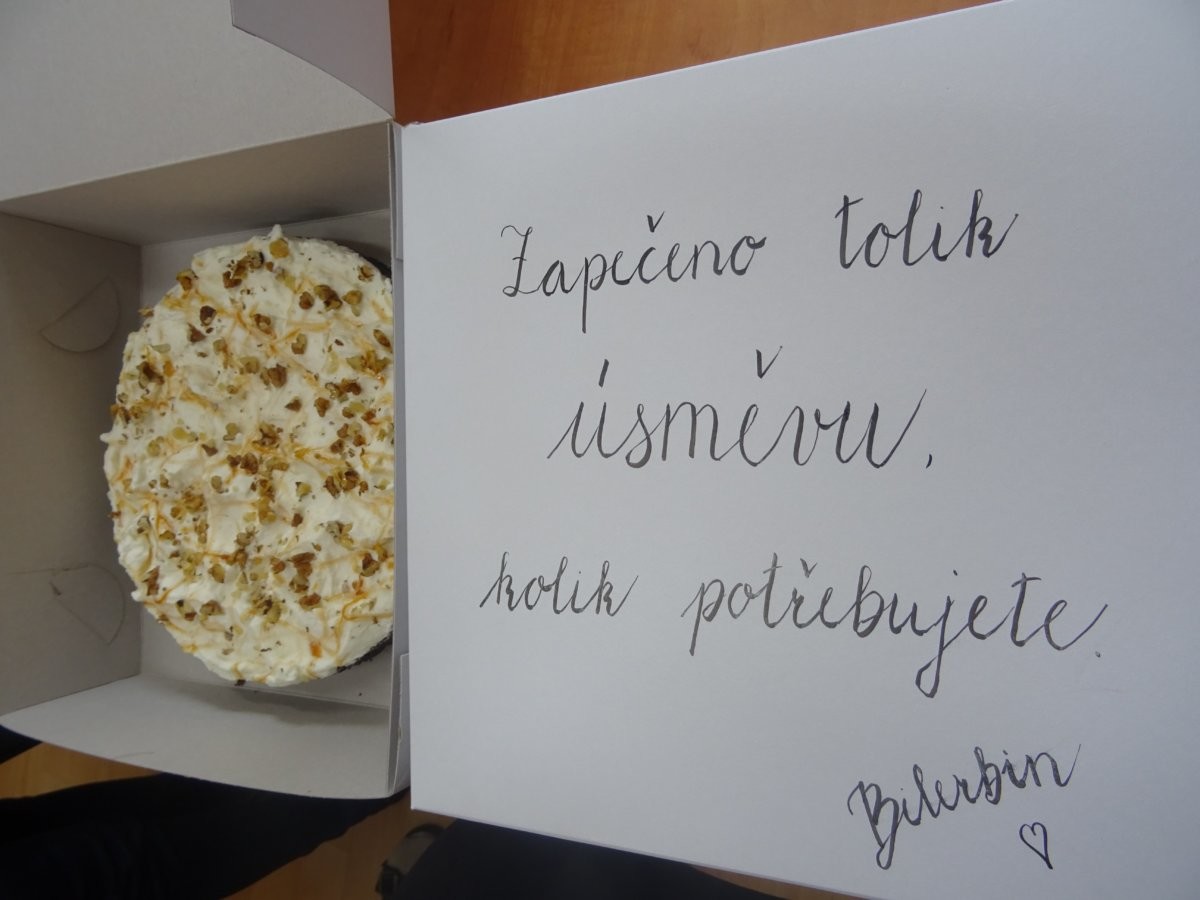 Zapečeno tolik
úsměvu,
kolik potřebujete.
Bilerbin